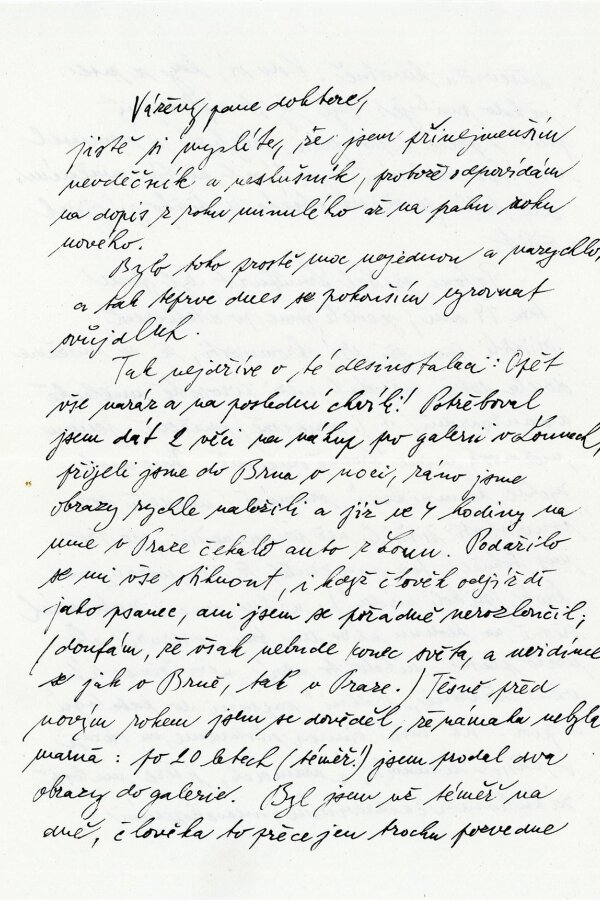 Vážený pane doktore,
jistě si myslíte, že jsem přinejmenším
nevděčník a neslušník, protože odpovídám
na dopis z roku minulého až na prahu roku
nového.
Bylo toho prostě moc najednou a narychlo,
a tak teprve dnes se pokouším vyrovnat
svůj dluh.
Tak nejdříve o té desinstalaci: Opět
vše naráz a na poslední chvíli! Potřeboval
jsem dát 2 věci na nákup pro galerii v Lounech,
přijeli jsme do Brna v noci, ráno jsme
obrazy rychle naložili a již ve 4 hodiny na
mne v Praze čekalo auto z Loun. Podařilo
se mi vše stihnout, i když člověk odjíždí
jako psanec, ani jsem se pořádně nerozloučil;
(doufám, že však nebude konec světa, a uvidíme
se jak v Brně, tak v Praze.) Těsně před
novým rokem jsem se dověděl, že námaha nebyla
marná: po 20 letech (téměř!) jsem prodal dva
obrazy do galerie. (Byl jsem už téměř na
dně, člověka to přece jen trochu pozvedne